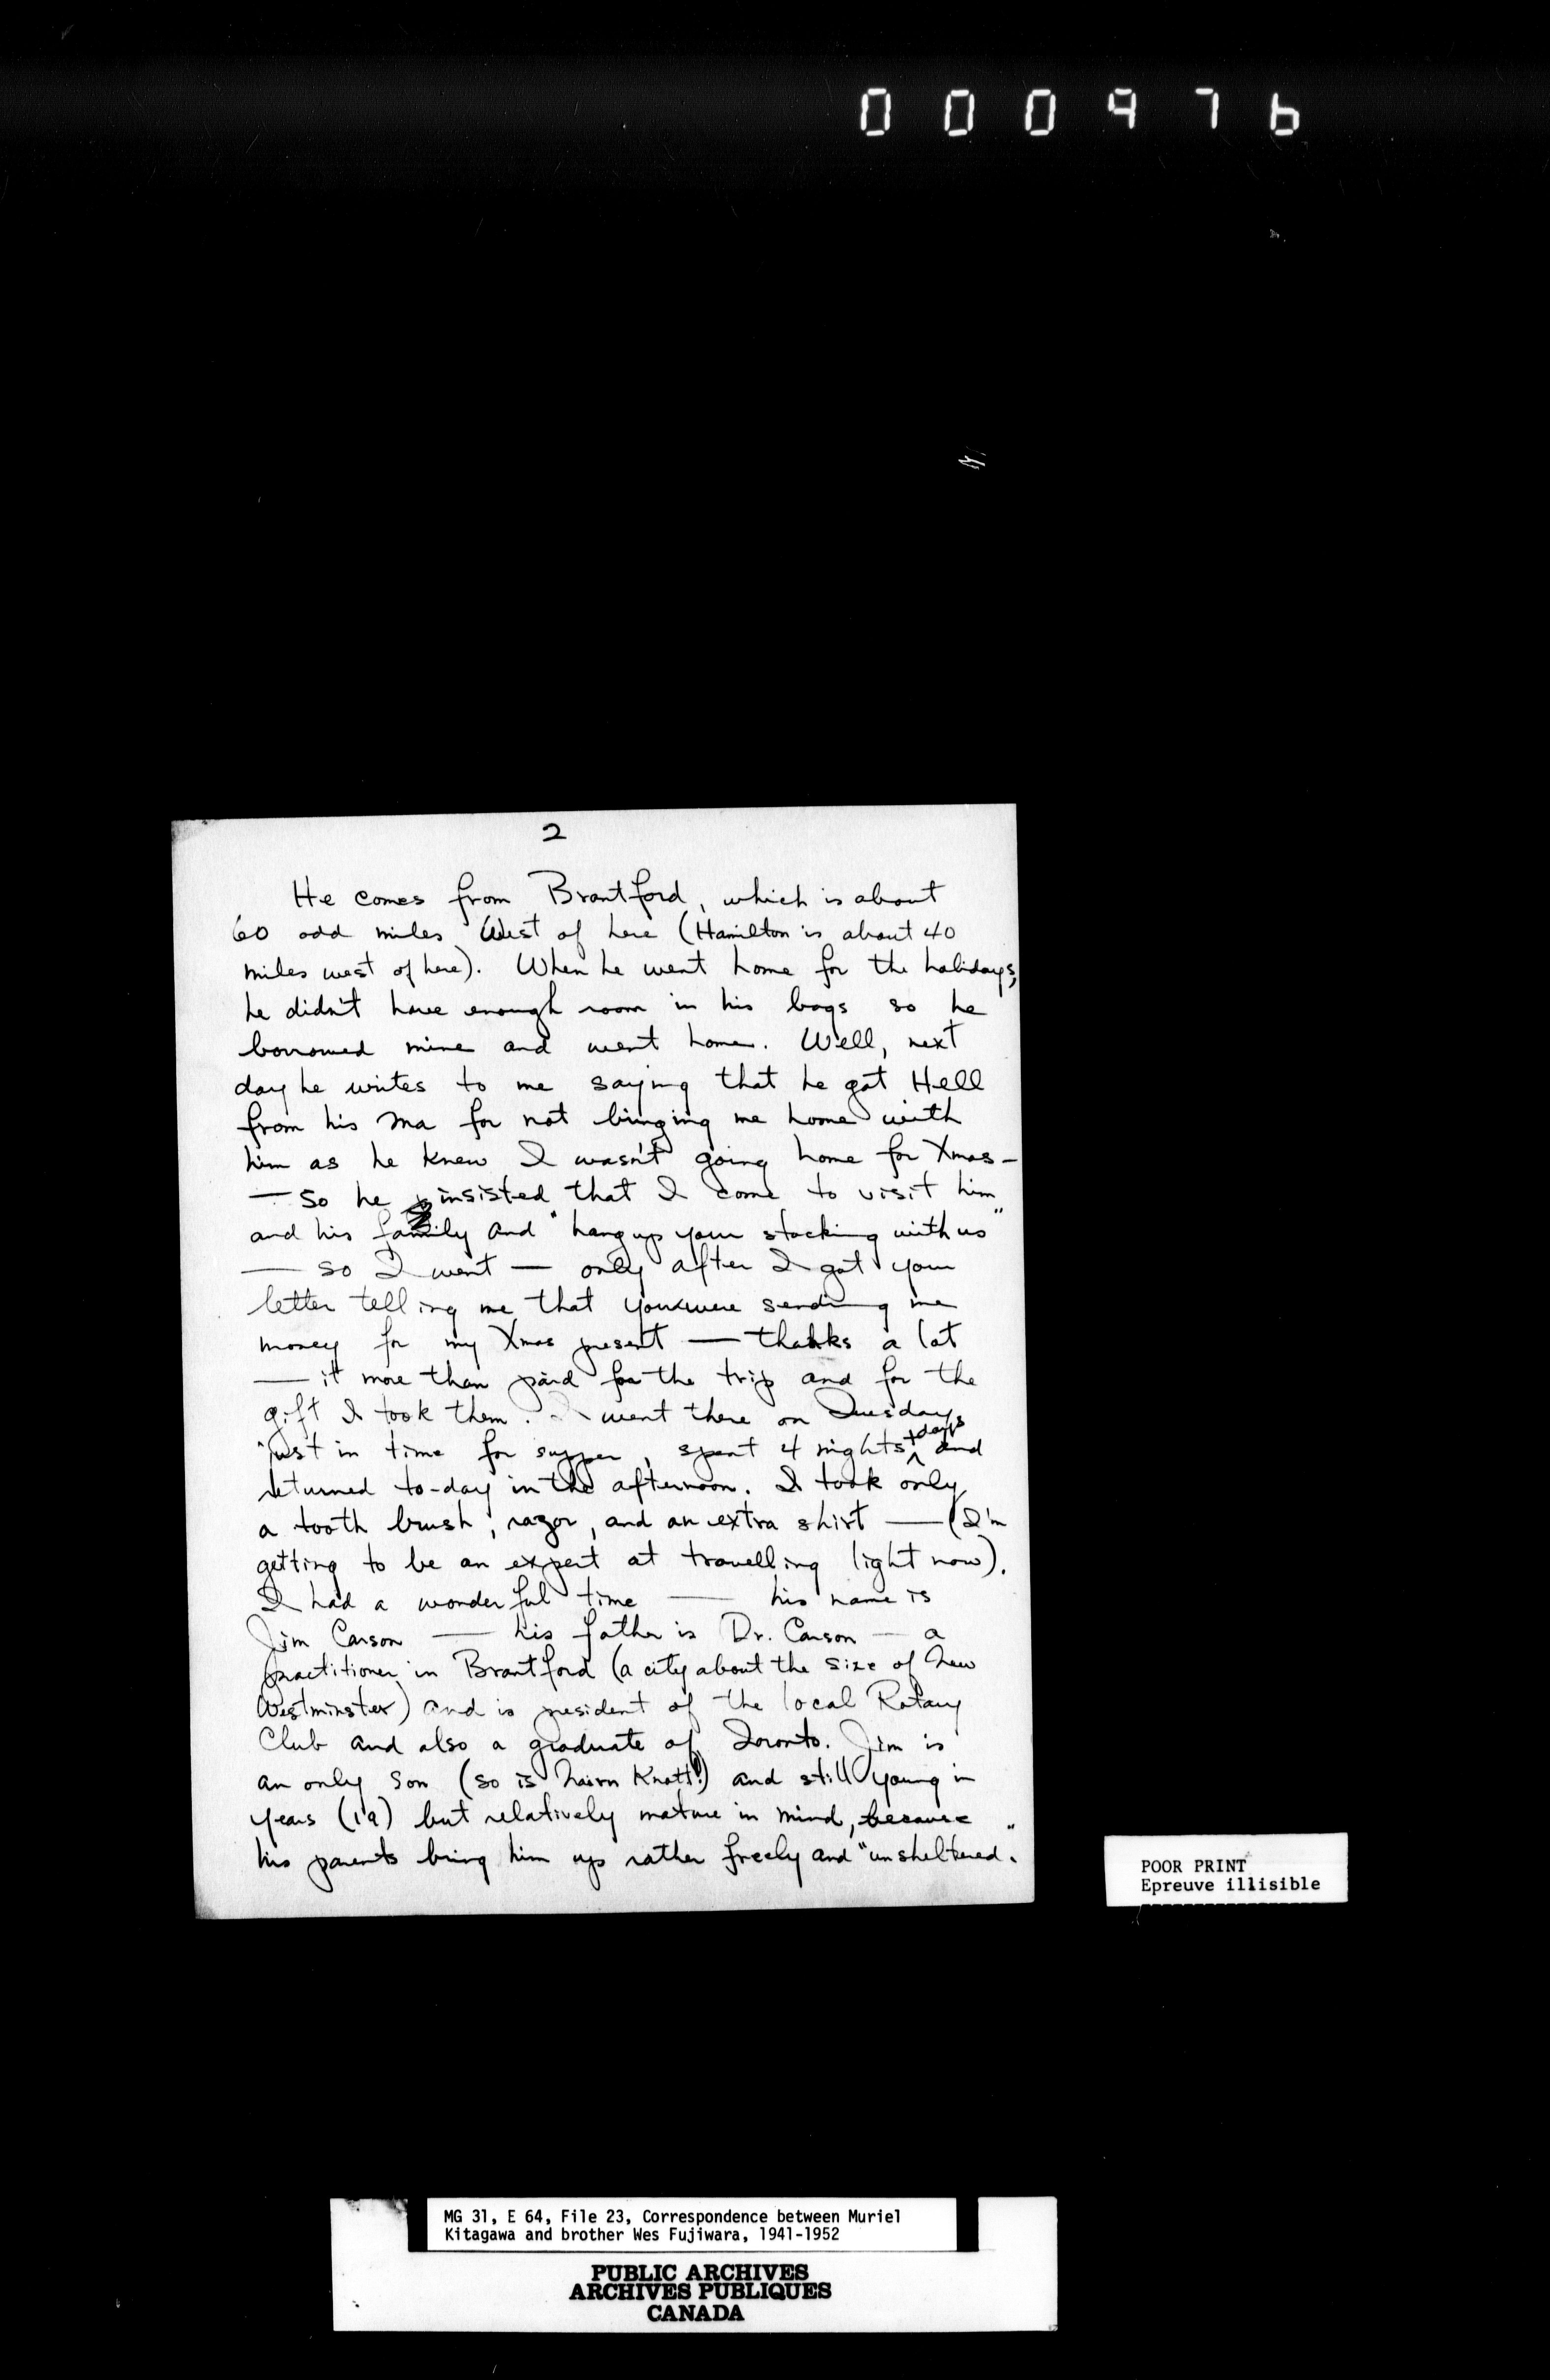 000976
2
He comes from Brantford, which is about
60 odd miles West of here (Hamilton is about 40
miles west of here). When he went home for the holidays,
he didn't have enough room in his bags so he
borrowed mine and went home. Well, next
day he writes to me saying that he got Hell
from his Ma for not bringing me home with
him as he knew I wasn't going home for Xmas -
— so he insisted that I come to visit him
and his family and "hang up your stocking with us"
— so I went — only after I got your
letter telling me that you were sending me
money for my Xmas present — thanks a lot
— it more than paid for the trip and for the
gift I took them. I went there on Tuesday
just in time for supper, spent 4 nights + days and
returned to-day in the afternoon. I took only
a tooth brush, razor, and an extra shirt — (I'm
getting to be an expert at travelling light now).
I had a wonderful time — his name is
Jim Carson — his father is Dr. Carson — a
practitioner in Brantford (a city about the size of New
Westminster) and is president of the local Rotary
Club and also a graduate of Toronto. Jim is
an only son (so is Knott!) and still young in
years (19) but relatively mature in mind, because
his parents bring him up rather freely and "unsheltered."
POOR PRINT
Epreuve illisible
MG 31, E 64, File 23, Correspondence between Muriel
Kitagawa and brother Wes Fujiwara, 1941-1952
PUBLIC ARCHIVES
ARCHIVES PUBLIQUES
CANADA